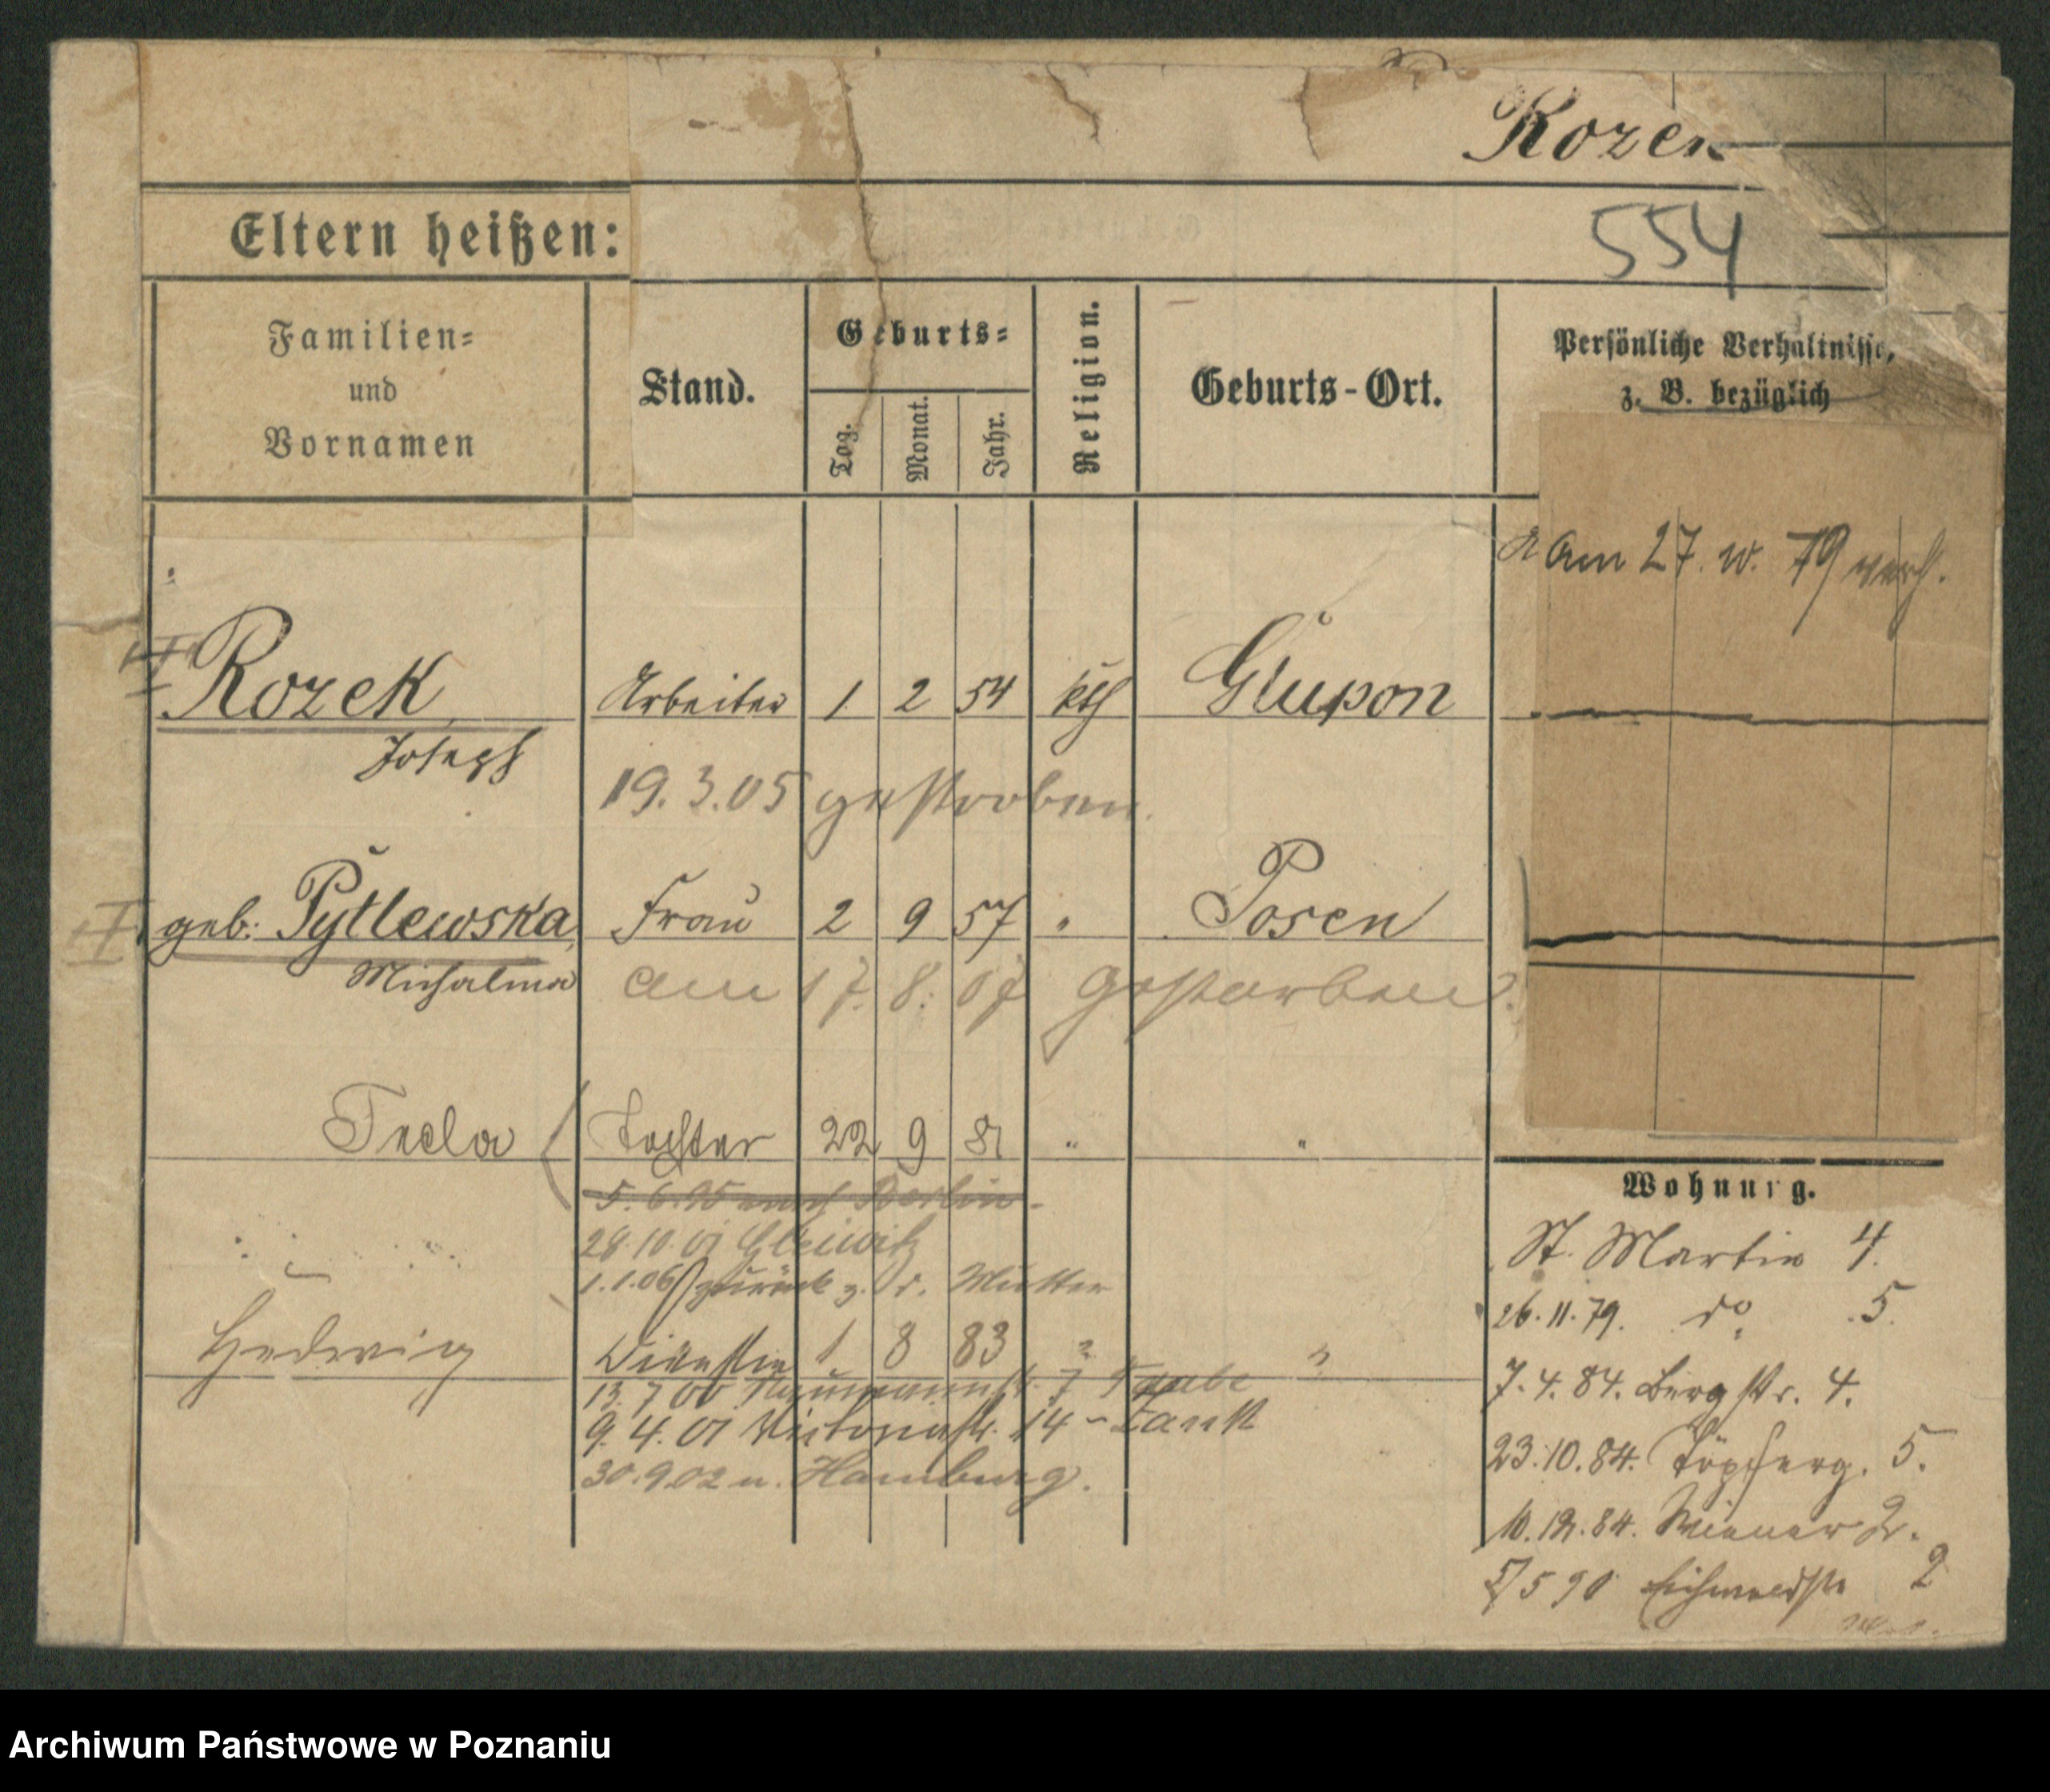 Rozek
554
Eltern heißen:
Familien=
und
Vornamen
Stand.
Geburts=
Tag.
Monat.
Jahr.
Religion.
Geburts-Ort.
Persönliche Verhältnisse,
z. B. bezüglich
am 27. 79
Rozek Arbeiter 1 2 54 kth Glupon
Joseph
19.3.05 gestorben.
geb: Pytlewska, Frau 2 9 57 " Posen
Michalina am 17. 8. 07 gestorben.
Tecla Tochter 22 9 81 " "
5.6.95 nach Berlin
28.10.01 Gleiwitz
1.1.06 zurück z. d. Mutter
Hedwig 1 8 83 " "
13 7 00 Naumannstr. 7 Taube
9.4.01 Victoriastr. 14 -
30.9.02 n. Hamburg.
Wohnung.
St. Martin 4.
26.11.79. do 5.
7.4.84. Bergstr. 4.
23.10.84. Töpferg. 5.
10.12.84. Wiener 2.
5 90 Eichwaldstr 2
Archiwum Państwowe w Poznaniu